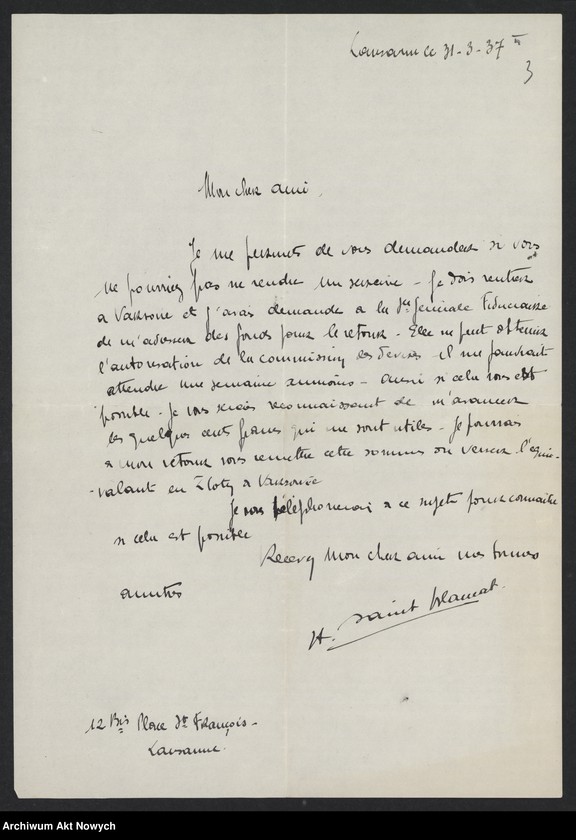 Lausanne le 31-3-37
3
Mon cher ami
Je me permets de vous demander si vous
ne pourriez pas me rendre un service - Je dois rentrer
a Varsovie et j'avais demande a la Sté Generale Fiduciaire
de m'adresser des fonds pour le retour - Elle ne peut obtenir
l'autorisation de la commission des devises il me faudrait
attendre une semaine aumoins - aussi si cela vous est
possible - Je vous serais reconnaissant de m'avancer
les quelques cents francs qui me sont utiles - Je pourrais
a mon retour vous remettre cette somme ou verser l'equi-
-valant en Zloty a Varsovie
Je vous téléphonerai a ce sujet pour connaitre
si cela est possible
Recevez Mon cher ami mes bonnes
amities
H. Saint
12 Bis Place St François -
Lausanne.
Archiwum Akt Nowych